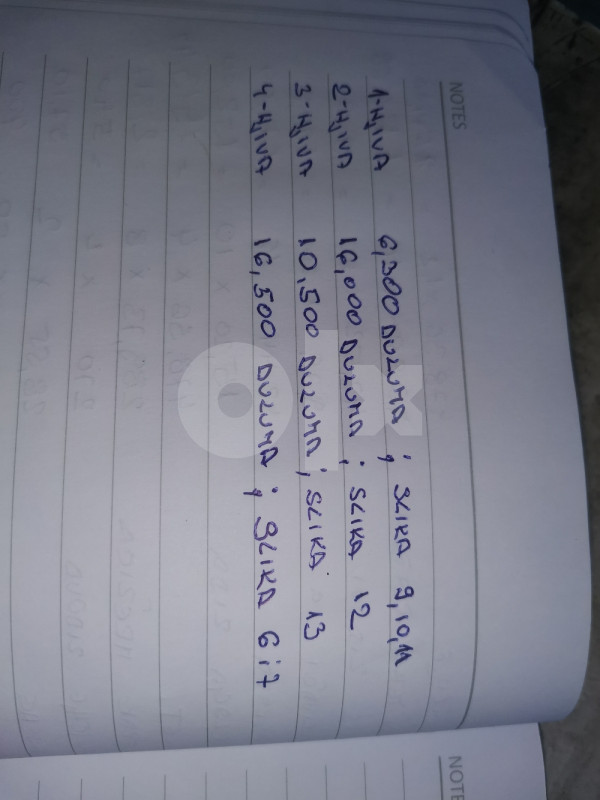 NOTES
1-NJIVA 6,300 DULUMA ; SLIKA 9,10,11
2-NJIVA 16,000 DULUMA ; SLIKA 12
3-NJIVA 10,500 DULUMA ; SLIKA 13
4-NJIVA 16,500 DULUMA ; SLIKA 6 i 7
olx
NOTE